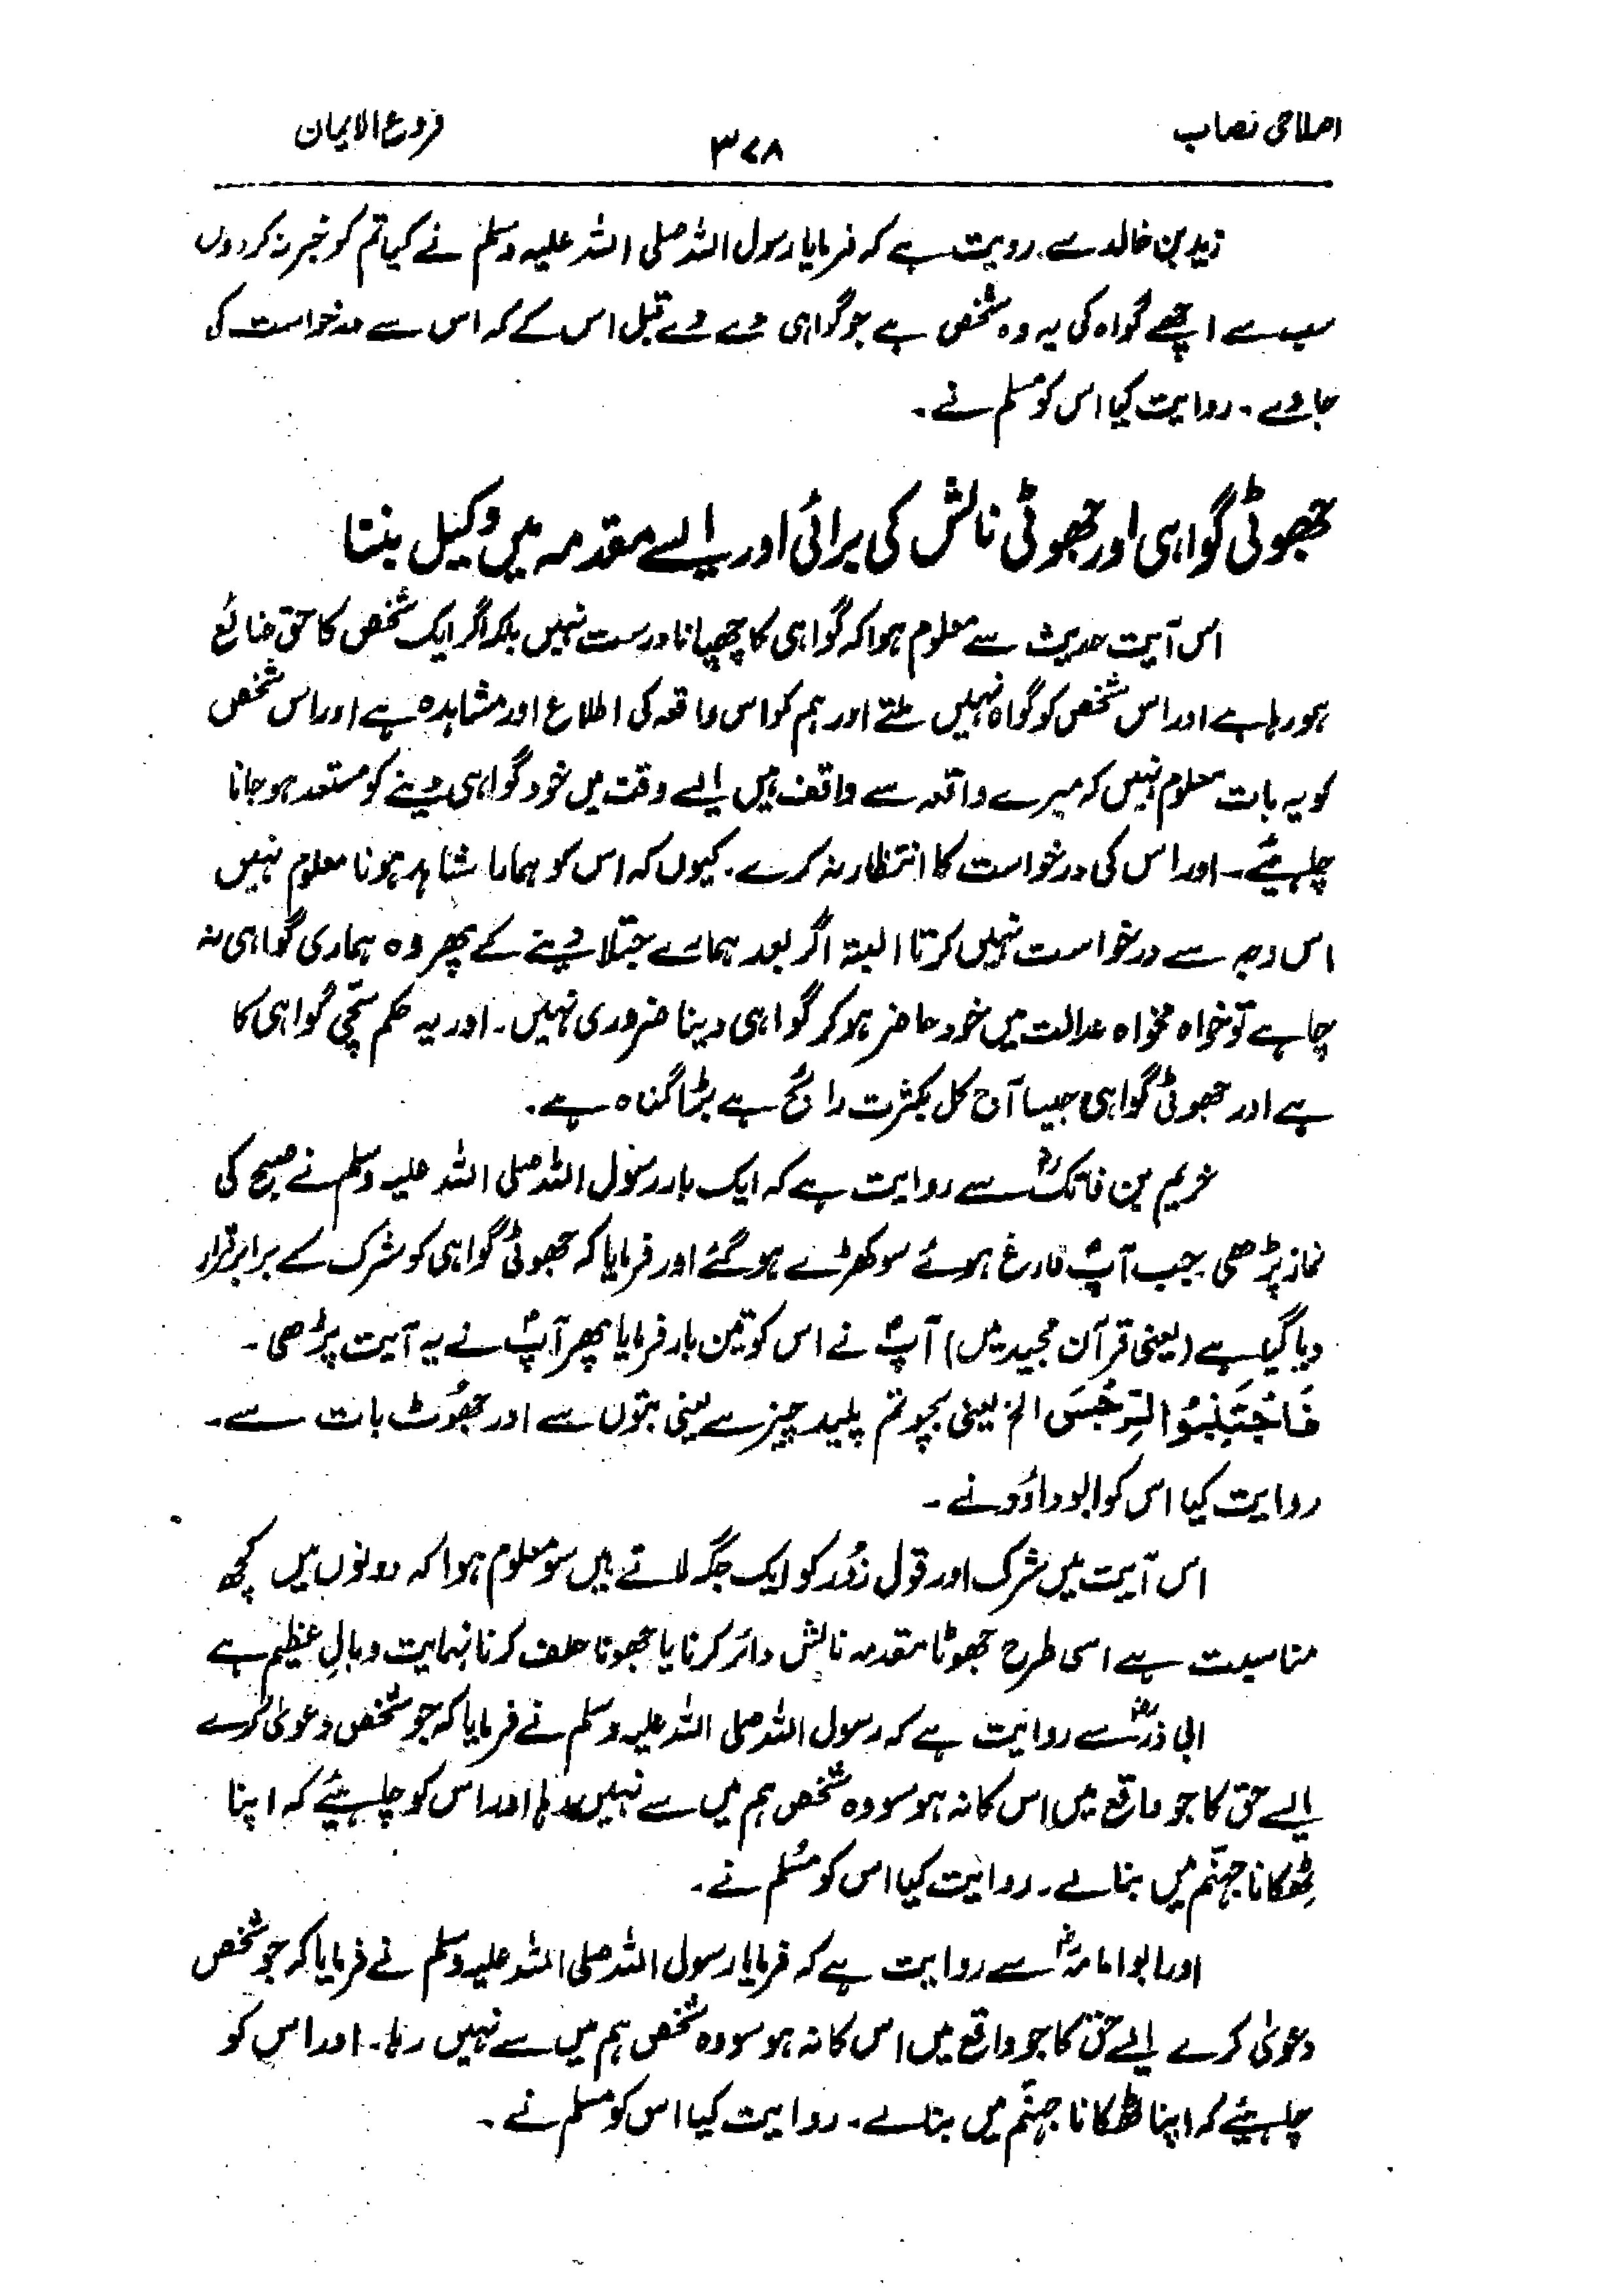 اصلاحی نصاب
۳۷۸
فروع الایمان
زید بن خالد سے روایت ہے کہ فرمایا رسول اللہ صلی اللہ علیہ وسلم نے کیا تم کو خبر نہ کر دوں
سب سے اچھے گواہ کی یہ وہ شخص ہے جو گواہی دے دے قبل اس کے کہ اس سے درخواست کی
جاوے۔ روایت کیا اس کو مسلم نے۔
جھوٹی گواہی اور جھوٹی نالش کی برائی اور ایسے مقدمہ میں وکیل بننا
اس آیت حدیث سے معلوم ہوا کہ گواہی کا چھپانا درست نہیں بلکہ اگر ایک شخص کا حق ضائع
ہو رہا ہے اور اس شخص کو گواہ نہیں ملتے اور ہم کو اس واقعہ کی اطلاع اور مشاہدہ ہے اور اس شخص
کو یہ بات معلوم نہیں کہ میرے واقعہ سے واقف ہیں ایسے وقت میں خود گواہی دینے کو مستعد ہو جانا
چاہیئے۔ اور اس کی درخواست کا انتظار نہ کرے۔ کیوں کہ اس کو ہمارا شاہد ہونا معلوم نہیں
اس وجہ سے درخواست نہیں کرتا البتہ اگر بعد ہمارے جتلا دینے کے پھر وہ ہماری گواہی نہ
چاہے تو خواہ مخواہ عدالت میں خود حاضر ہو کر گواہی دینا ضروری نہیں۔ اور یہ حکم سچّی گواہی کا
ہے اور جھوٹی گواہی جیسا آج کل بکثرت رائج ہے بڑا گناہ ہے۔
خریم بن فاتکؓ سے روایت ہے کہ ایک بار رسول اللہ صلی اللہ علیہ وسلم نے صبح کی
نماز پڑھی جب آپؐ فارغ ہوئے سو کھڑے ہو گئے اور فرمایا کہ جھوٹی گواہی کو شرک کے برابر قرار
دیا گیا ہے (یعنی قرآن مجید میں) آپؐ نے اس کو تین بار فرمایا پھر آپؐ نے یہ آیت پڑھی۔
فَاجْتَنِبُوا الرِّجْسَ الخ یعنی بچو تم پلید چیز سے یعنی بتوں سے اور جھُوٹ بات سے۔
روایت کیا اس کو ابو داؤد نے۔
اس آیت میں شرک اور قول زُور کو ایک جگہ لاتے ہیں سو معلوم ہوا کہ دونوں میں کچھ
مناسبت ہے اسی طرح جھوٹا مقدمہ نالش دائر کرنا یا جھوٹا حلف کرنا نہایت وبالِ عظیم ہے
ابی ذرؓ سے روایت ہے کہ رسول اللہ صلی اللہ علیہ وسلم نے فرمایا کہ جو شخص دعویٰ کرے
ایسے حق کا جو واقع میں اس کا نہ ہو سو وہ شخص ہم میں سے نہیں رہا اور اس کو چاہیئے کہ اپنا
ٹھِکانا جہنّم میں بنالے۔ روایت کیا اس کو مُسلم نے۔
اور ابو امامہؓ سے روایت ہے کہ فرمایا رسول اللہ صلی اللہ علیہ وسلم نے فرمایا کہ جو شخص
دعویٰ کرے ایسے حق کا جو واقع میں اس کا نہ ہو سو وہ شخص ہم میں سے نہیں رہا۔ اور اس کو
چاہیئے کہ اپنا ٹھکانا جہنّم میں بنالے۔ روایت کیا اس کو مسلم نے۔